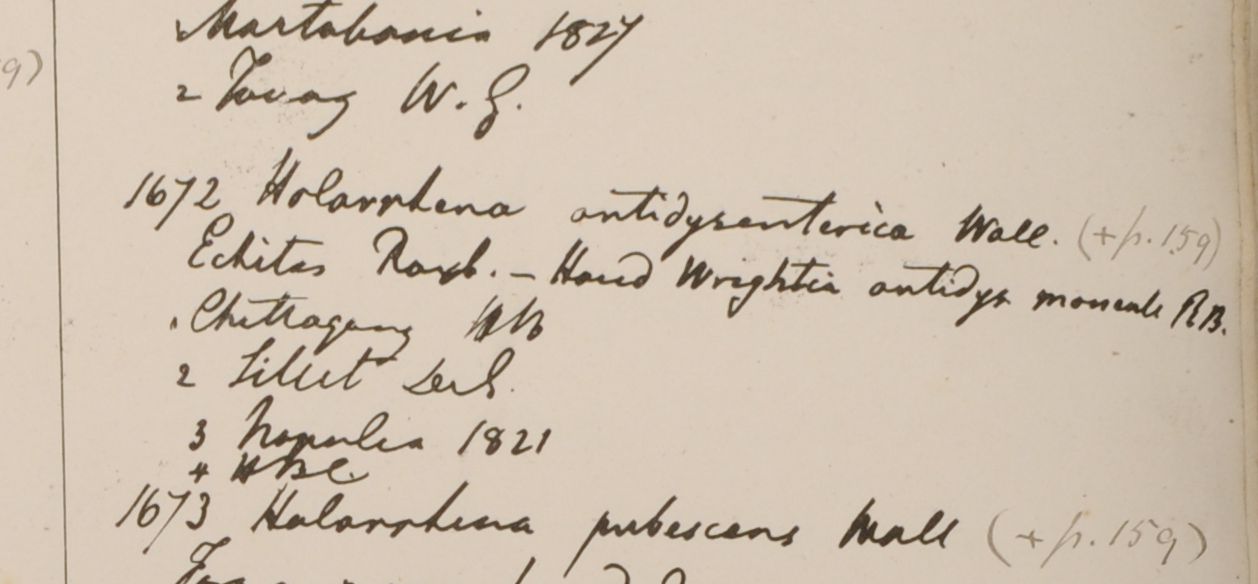 9)
Martabania 1827
2 Tavoy W. G.
1672 Holarrhena antidysenterica Wall. (+p. 159)
Echites Roxb. – Haud Wrightia antidys R.B.
. Chittagong HB
2 Sillet
3 Napalia 1821
4 HBC.
1673 Holarrhena pubescens Wall (+p. 159)